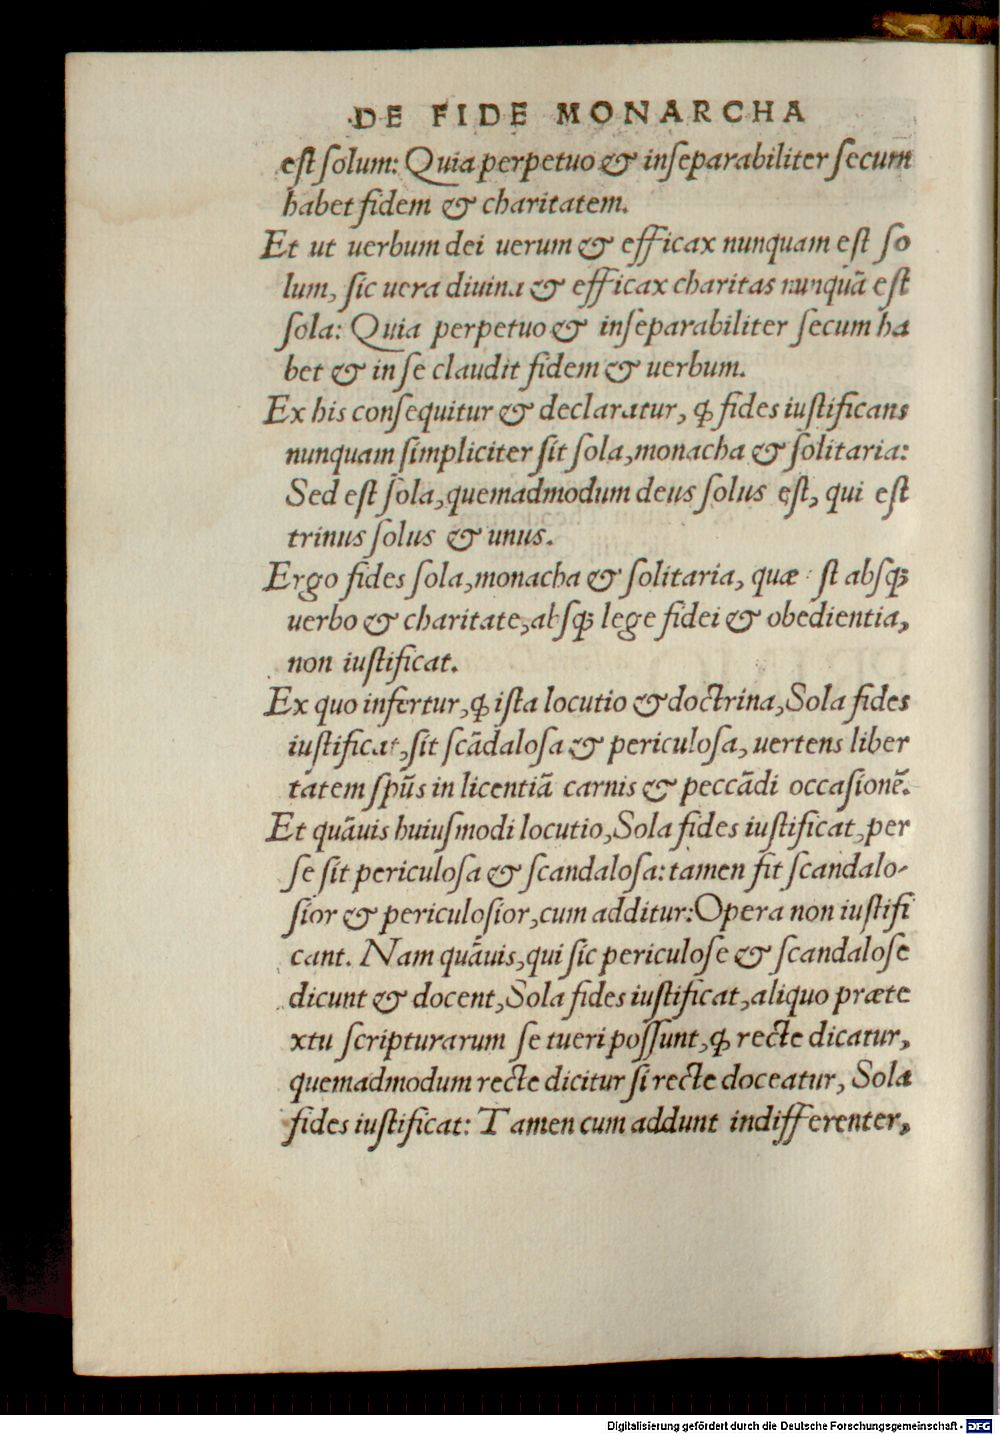 DE FIDE MONARCHA
est solum: Quia perpetuo & inseparabiliter secum
habet fidem & charitatem.
Et ut uerbum dei uerum & efficax nunquam est so
lum, sic uera diuina & efficax charitas nunquā est
sola: Quia perpetuo & inseparabiliter secum ha
bet & in se claudit fidem & uerbum.
Ex his consequitur & declaratur, ꝙ fides iustificans
nunquam simpliciter sit sola, monacha & solitaria:
Sed est sola, quemadmodum deus solus est, qui est
trinus solus & unus.
Ergo fides sola, monacha & solitaria, quæ st absqꝫ
uerbo & charitate, absqꝫ lege fidei & obedientia,
non iustificat.
Ex quo infertur, ꝙ ista locutio & doctrina, Sola fides
iustificat, sit scādalosa & periculosa, uertens liber
tatem spūs in licentiā carnis & peccādi occasionē.
Et quāuis huiusmodi locutio, Sola fides iustificat, per
se sit periculosa & scandalosa: tamen fit scandalo-
sior & periculosior, cum additur: Opera non iustifi
cant. Nam quāuis, qui sic periculose & scandalose
dicunt & docent, Sola fides iustificat, aliquo præte
xtu scripturarum se tueri possunt, ꝙ recte dicatur,
quemadmodum recte dicitur si recte doceatur, Sola
fides iustificat: Tamen cum addunt indifferenter,
Digitalisierung gefördert durch die Deutsche Forschungsgemeinschaft - DFG